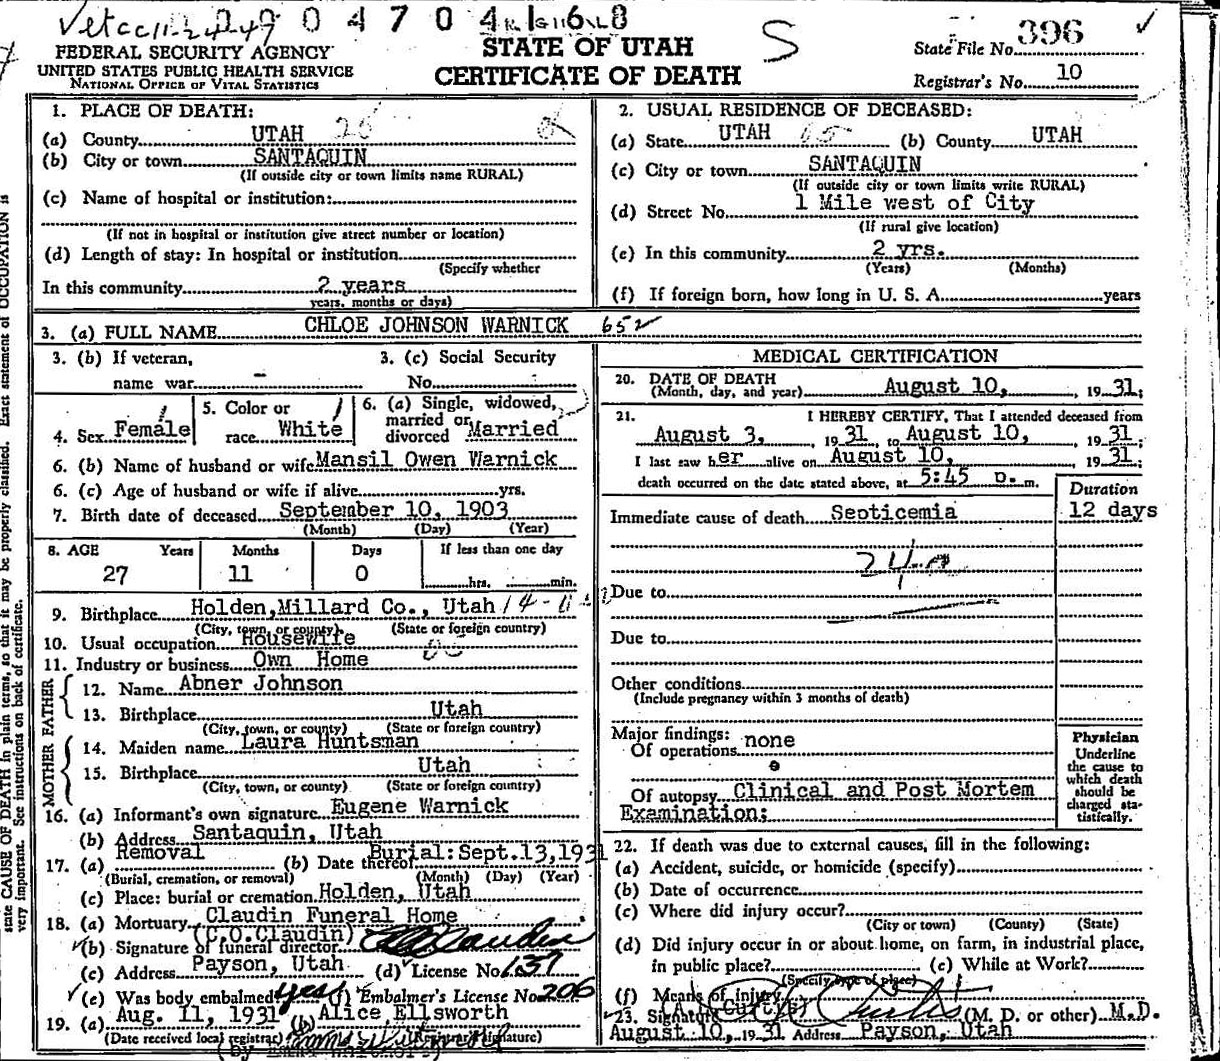 Vetcc11-24-49 0 4 7 0 4 1 6 8
FEDERAL SECURITY AGENCY
UNITED STATES PUBLIC HEALTH SERVICE
NATIONAL OFFICE OF VITAL STATISTICS
STATE OF UTAH
CERTIFICATE OF DEATH
S
State File No. 396
Registrar's No. 10
1. PLACE OF DEATH:
(a) County UTAH
(b) City or town SANTAQUIN
(If outside city or town limits name RURAL)
(c) Name of hospital or institution:
(If not in hospital or institution give street number or location)
(d) Length of stay: In hospital or institution
(Specify whether
In this community 2 years
years, months or days)
2. USUAL RESIDENCE OF DECEASED:
(a) State UTAH (b) County UTAH
(c) City or town SANTAQUIN
(If outside city or town limits write RURAL)
(d) Street No. 1 Mile west of City
(If rural give location)
(e) In this community 2 yrs.
(Years) (Months)
(f) If foreign born, how long in U. S. A. years
3. (a) FULL NAME CHLOE JOHNSON WARNICK 652
3. (b) If veteran,
name war –
3. (c) Social Security
No.
4. Sex Female
5. Color or
race White
6. (a) Single, widowed,
married or
divorced Married
6. (b) Name of husband or wife Mansil Owen Warnick
6. (c) Age of husband or wife if alive yrs.
7. Birth date of deceased September 10, 1903
(Month) (Day) (Year)
8. AGE Years Months Days If less than one day
27 11 0 hrs. min.
9. Birthplace Holden, Millard Co., Utah
(City, town, or county) (State or foreign country)
10. Usual occupation Housewife
11. Industry or business Own Home
FATHER
12. Name Abner Johnson
13. Birthplace Utah
(City, town, or county) (State or foreign country)
MOTHER
14. Maiden name Laura Huntsman
15. Birthplace Utah
(City, town, or county) (State or foreign country)
16. (a) Informant's own signature Eugene Warnick
(b) Address Santaquin, Utah
17. (a) Removal (b) Date thereof Burial: Sept. 13, 1931
(Burial, cremation, or removal) (Month) (Day) (Year)
(c) Place: burial or cremation Holden, Utah
18. (a) Mortuary Claudin Funeral Home
(C.O.Claudin)
(b) Signature of funeral director Claudin
(c) Address Payson, Utah (d) License No. 137
(e) Was body embalmed yes (f) Embalmer's License No. 206
19. (a) Aug. 11, 1931 (b) Alice Ellsworth
(Date received local registrar) (Registrar's signature)
MEDICAL CERTIFICATION
20. DATE OF DEATH
(Month, day, and year) August 10, , 19 31;
21. I HEREBY CERTIFY, That I attended deceased from
August 3, , 19 31, to August 10, , 19 31;
I last saw her alive on August 10, , 19 31;
death occurred on the date stated above, at 5:45 p. m.
Duration
Immediate cause of death Septicemia 12 days
24
Due to
Due to
Other conditions
(Include pregnancy within 3 months of death)
Major findings:
Of operations none
Of autopsy Clinical and Post Mortem
Examination:
Physician
Underline
the cause to
which death
should be
charged sta-
tistically.
22. If death was due to external causes, fill in the following:
(a) Accident, suicide, or homicide (specify)
(b) Date of occurrence
(c) Where did injury occur?
(City or town) (County) (State)
(d) Did injury occur in or about home, on farm, in industrial place,
in public place? (e) While at Work?
(Specify type of place)
(f) Means of injury
23. Signature Curtis (M. D. or other) M.D.
August 10, , 19 31 Address Payson, Utah
state CAUSE OF DEATH in plain terms, so that it may be properly classified. Exact statement of OCCUPATION is
very important. See instructions on back of certificate.